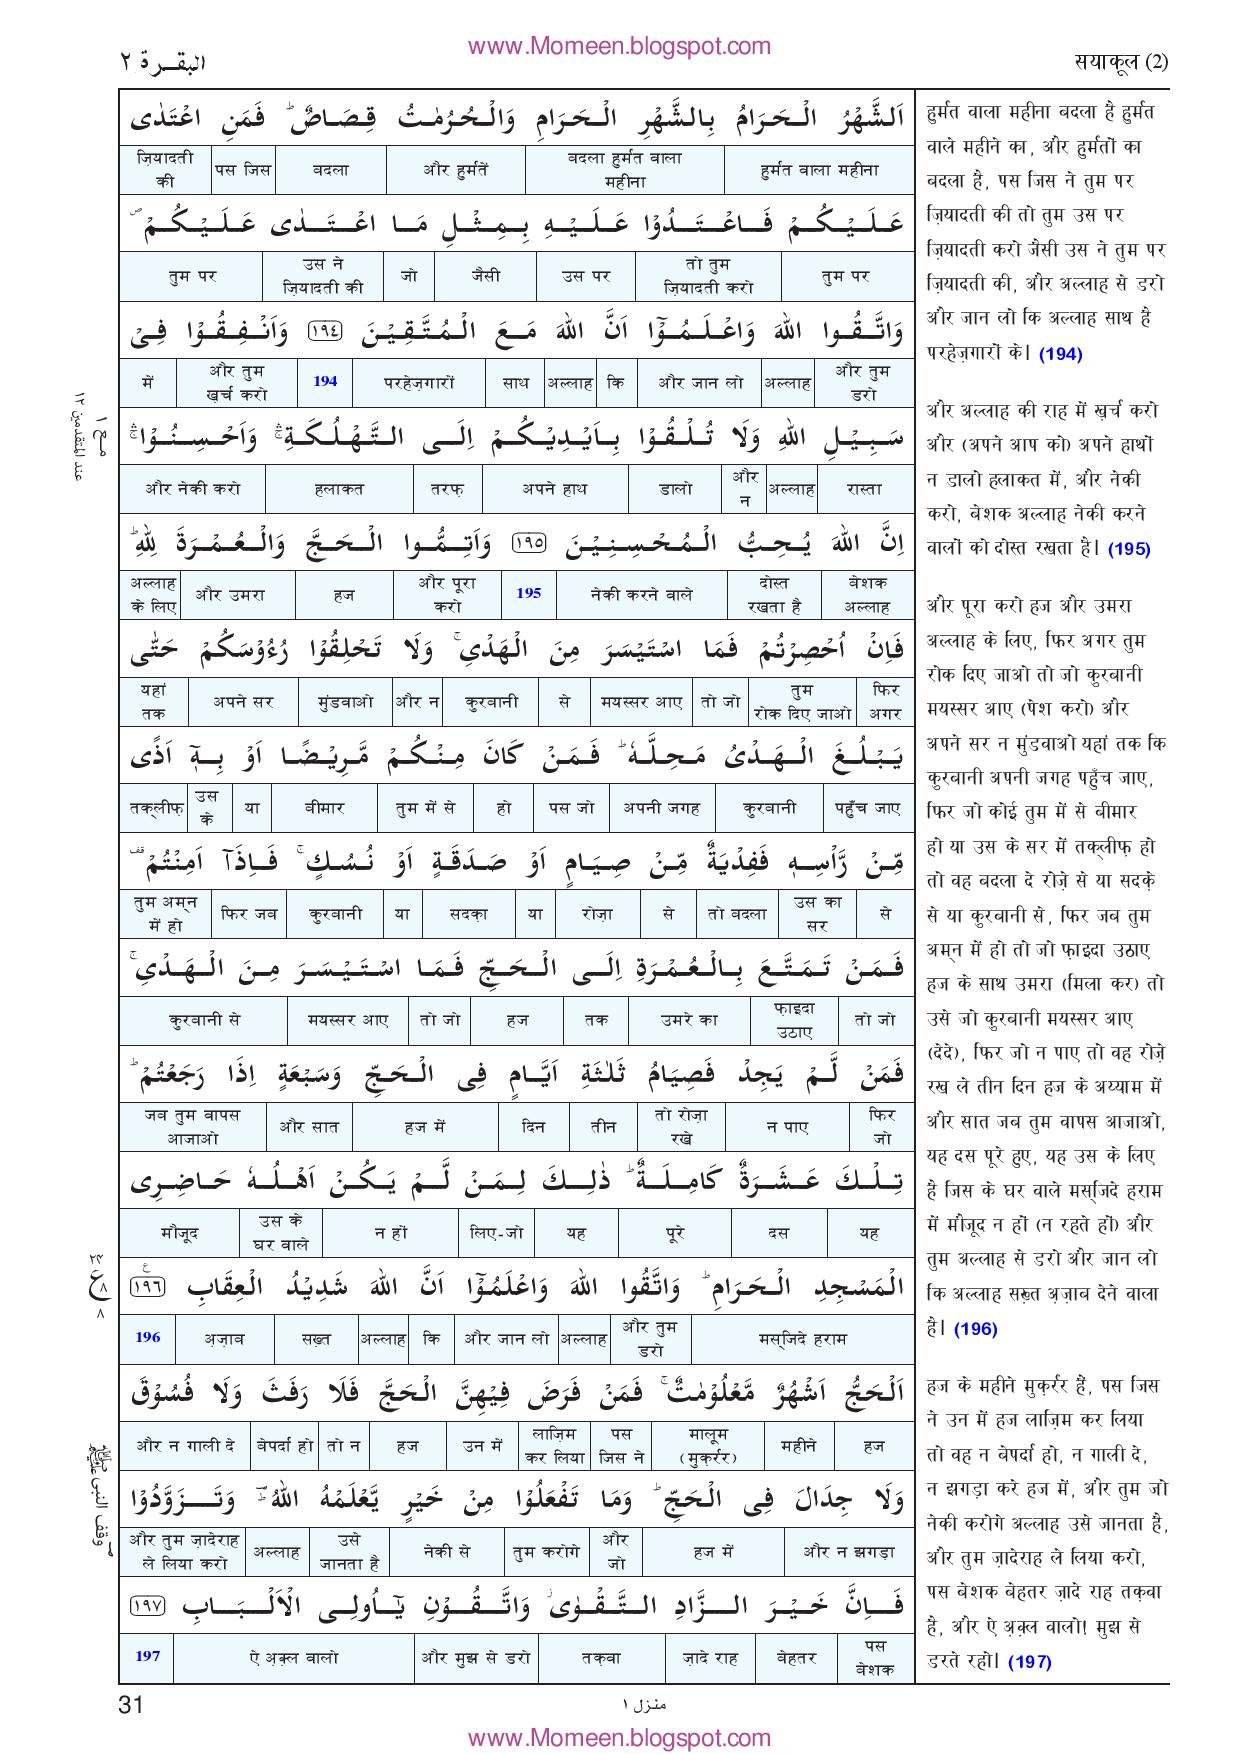 www.Momeen.blogspot.com
البقرة ٢
सयाकूल (2)
اَلشَّهْرُ الْحَرَامُ بِالشَّهْرِ الْحَرَامِ وَالْحُرُمٰتُ قِصَاصٌ ؕ فَمَنِ اعْتَدٰى
हुर्मत वाला महीना | बदला हुर्मत वाला महीना | और हुर्मतें | बदला | पस जिस | ज़ियादती की
عَلَيْكُمْ فَاعْتَدُوْا عَلَيْهِ بِمِثْلِ مَا اعْتَدٰى عَلَيْكُمْ ۪
तुम पर | तो तुम ज़ियादती करो | उस पर | जैसी | जो | उस ने ज़ियादती की | तुम पर
وَاتَّقُوا اللهَ وَاعْلَمُوْٓا اَنَّ اللهَ مَعَ الْمُتَّقِيْنَ ١٩٤ وَاَنْفِقُوْا فِيْ
और तुम डरो | अल्लाह | और जान लो | कि | अल्लाह | साथ | परहेज़गारों | 194 | और तुम ख़र्च करो | में
سَبِيْلِ اللهِ وَلَا تُلْقُوْا بِاَيْدِيْكُمْ اِلَى التَّهْلُكَةِ ۛۚ وَاَحْسِنُوْا ۛۚ
रास्ता | अल्लाह | और न | डालो | अपने हाथ | तरफ़ | हलाकत | और नेकी करो
اِنَّ اللهَ يُحِبُّ الْمُحْسِنِيْنَ ١٩٥ وَاَتِمُّوا الْحَجَّ وَالْعُمْرَةَ لِلّٰهِ ؕ
बेशक अल्लाह | दोस्त रखता है | नेकी करने वाले | 195 | और पूरा करो | हज | और उमरा | अल्लाह के लिए
فَاِنْ اُحْصِرْتُمْ فَمَا اسْتَيْسَرَ مِنَ الْهَدْيِ ۚ وَلَا تَحْلِقُوْا رُءُوْسَكُمْ حَتّٰى
फिर अगर | तुम रोक दिए जाओ | तो जो | मयस्सर आए | से | कुरबानी | और न | मुंडवाओ | अपने सर | यहां तक
يَبْلُغَ الْهَدْيُ مَحِلَّهٗ ؕ فَمَنْ كَانَ مِنْكُمْ مَّرِيْضًا اَوْ بِهٖٓ اَذًى
पहुँच जाए | कुरबानी | अपनी जगह | पस जो | हो | तुम में से | बीमार | या | उस के | तक्लीफ़
مِّنْ رَّاْسِهٖ فَفِدْيَةٌ مِّنْ صِيَامٍ اَوْ صَدَقَةٍ اَوْ نُسُكٍ ۚ فَاِذَآ اَمِنْتُمْ ۥ
से | उस का सर | तो बदला | से | रोज़ा | या | सदका | या | कुरबानी | फिर जब | तुम अम्न में हो
فَمَنْ تَمَتَّعَ بِالْعُمْرَةِ اِلَى الْحَجِّ فَمَا اسْتَيْسَرَ مِنَ الْهَدْيِ ۚ
तो जो | फ़ाइदा उठाए | उमरे का | तक | हज | तो जो | मयस्सर आए | कुरबानी से
فَمَنْ لَّمْ يَجِدْ فَصِيَامُ ثَلٰثَةِ اَيَّامٍ فِى الْحَجِّ وَسَبْعَةٍ اِذَا رَجَعْتُمْ ؕ
फिर जो | न पाए | तो रोज़ा रखे | तीन | दिन | हज में | और सात | जब तुम वापस आजाओ
تِلْكَ عَشَرَةٌ كَامِلَةٌ ؕ ذٰلِكَ لِمَنْ لَّمْ يَكُنْ اَهْلُهٗ حَاضِرِى
यह | दस | पूरे | यह | लिए-जो | न हों | उस के घर वाले | मौजूद
الْمَسْجِدِ الْحَرَامِ ؕ وَاتَّقُوا اللهَ وَاعْلَمُوْٓا اَنَّ اللهَ شَدِيْدُ الْعِقَابِ ١٩٦
मस्जिदे हराम | और तुम डरो | अल्लाह | और जान लो | कि | अल्लाह | सख़्त | अ़ज़ाब | 196
اَلْحَجُّ اَشْهُرٌ مَّعْلُوْمٰتٌ ۚ فَمَنْ فَرَضَ فِيْهِنَّ الْحَجَّ فَلَا رَفَثَ وَلَا فُسُوْقَ
हज | महीने | मालूम (मुक़र्रर) | पस जिस ने | लाज़िम कर लिया | उन में | हज | तो न | बेपर्दा हो | और न गाली दे
وَلَا جِدَالَ فِى الْحَجِّ ؕ وَمَا تَفْعَلُوْا مِنْ خَيْرٍ يَّعْلَمْهُ اللهُ ؔ وَتَزَوَّدُوْا
और न झगड़ा | हज में | और जो | तुम करोगे | नेकी से | उसे जानता है | अल्लाह | और तुम ज़ादेराह ले लिया करो
فَاِنَّ خَيْرَ الزَّادِ التَّقْوٰى ۫ وَاتَّقُوْنِ يٰٓاُولِى الْاَلْبَابِ ١٩٧
पस बेशक | बेहतर | ज़ादे राह | तक़वा | और मुझ से डरो | ऐ अ़क़्ल वालो | 197
हुर्मत वाला महीना बदला है हुर्मत
वाले महीने का, और हुर्मतों का
बदला है, पस जिस ने तुम पर
ज़ियादती की तो तुम उस पर
ज़ियादती करो जैसी उस ने तुम पर
ज़ियादती की, और अल्लाह से डरो
और जान लो कि अल्लाह साथ है
परहेज़गारों के। (194)
और अल्लाह की राह में ख़र्च करो
और (अपने आप को) अपने हाथों
न डालो हलाकत में, और नेकी
करो, बेशक अल्लाह नेकी करने
वालों को दोस्त रखता है। (195)
और पूरा करो हज और उमरा
अल्लाह के लिए, फिर अगर तुम
रोक दिए जाओ तो जो कुरबानी
मयस्सर आए (पेश करो) और
अपने सर न मुंडवाओ यहां तक कि
कुरबानी अपनी जगह पहुँच जाए,
फिर जो कोई तुम में से बीमार
हो या उस के सर में तक्लीफ़ हो
तो वह बदला दे रोज़े से या सदक़े
से या कुरबानी से, फिर जब तुम
अम्न में हो तो जो फ़ाइदा उठाए
हज के साथ उमरा (मिला कर) तो
उसे जो कुरबानी मयस्सर आए
(देदे), फिर जो न पाए तो वह रोज़े
रख ले तीन दिन हज के अय्याम में
और सात जब तुम वापस आजाओ,
यह दस पूरे हुए, यह उस के लिए
है जिस के घर वाले मस्जिदे हराम
में मौजूद न हों (न रहते हों) और
तुम अल्लाह से डरो और जान लो
कि अल्लाह सख़्त अ़ज़ाब देने वाला
है। (196)
हज के महीने मुक़र्रर हैं, पस जिस
ने उन में हज लाज़िम कर लिया
तो वह न बेपर्दा हो, न गाली दे,
न झगड़ा करे हज में, और तुम जो
नेकी करोगे अल्लाह उसे जानता है,
और तुम ज़ादेराह ले लिया करो,
पस बेशक बेहतर ज़ादे राह तक़वा
है, और ऐ अ़क़्ल वालो! मुझ से
डरते रहो। (197)
مـع ١
عند المتقدمين ١٢
٢٤
ع
٨
٨
وقف النبي ﷺ
31
منزل ١
www.Momeen.blogspot.com